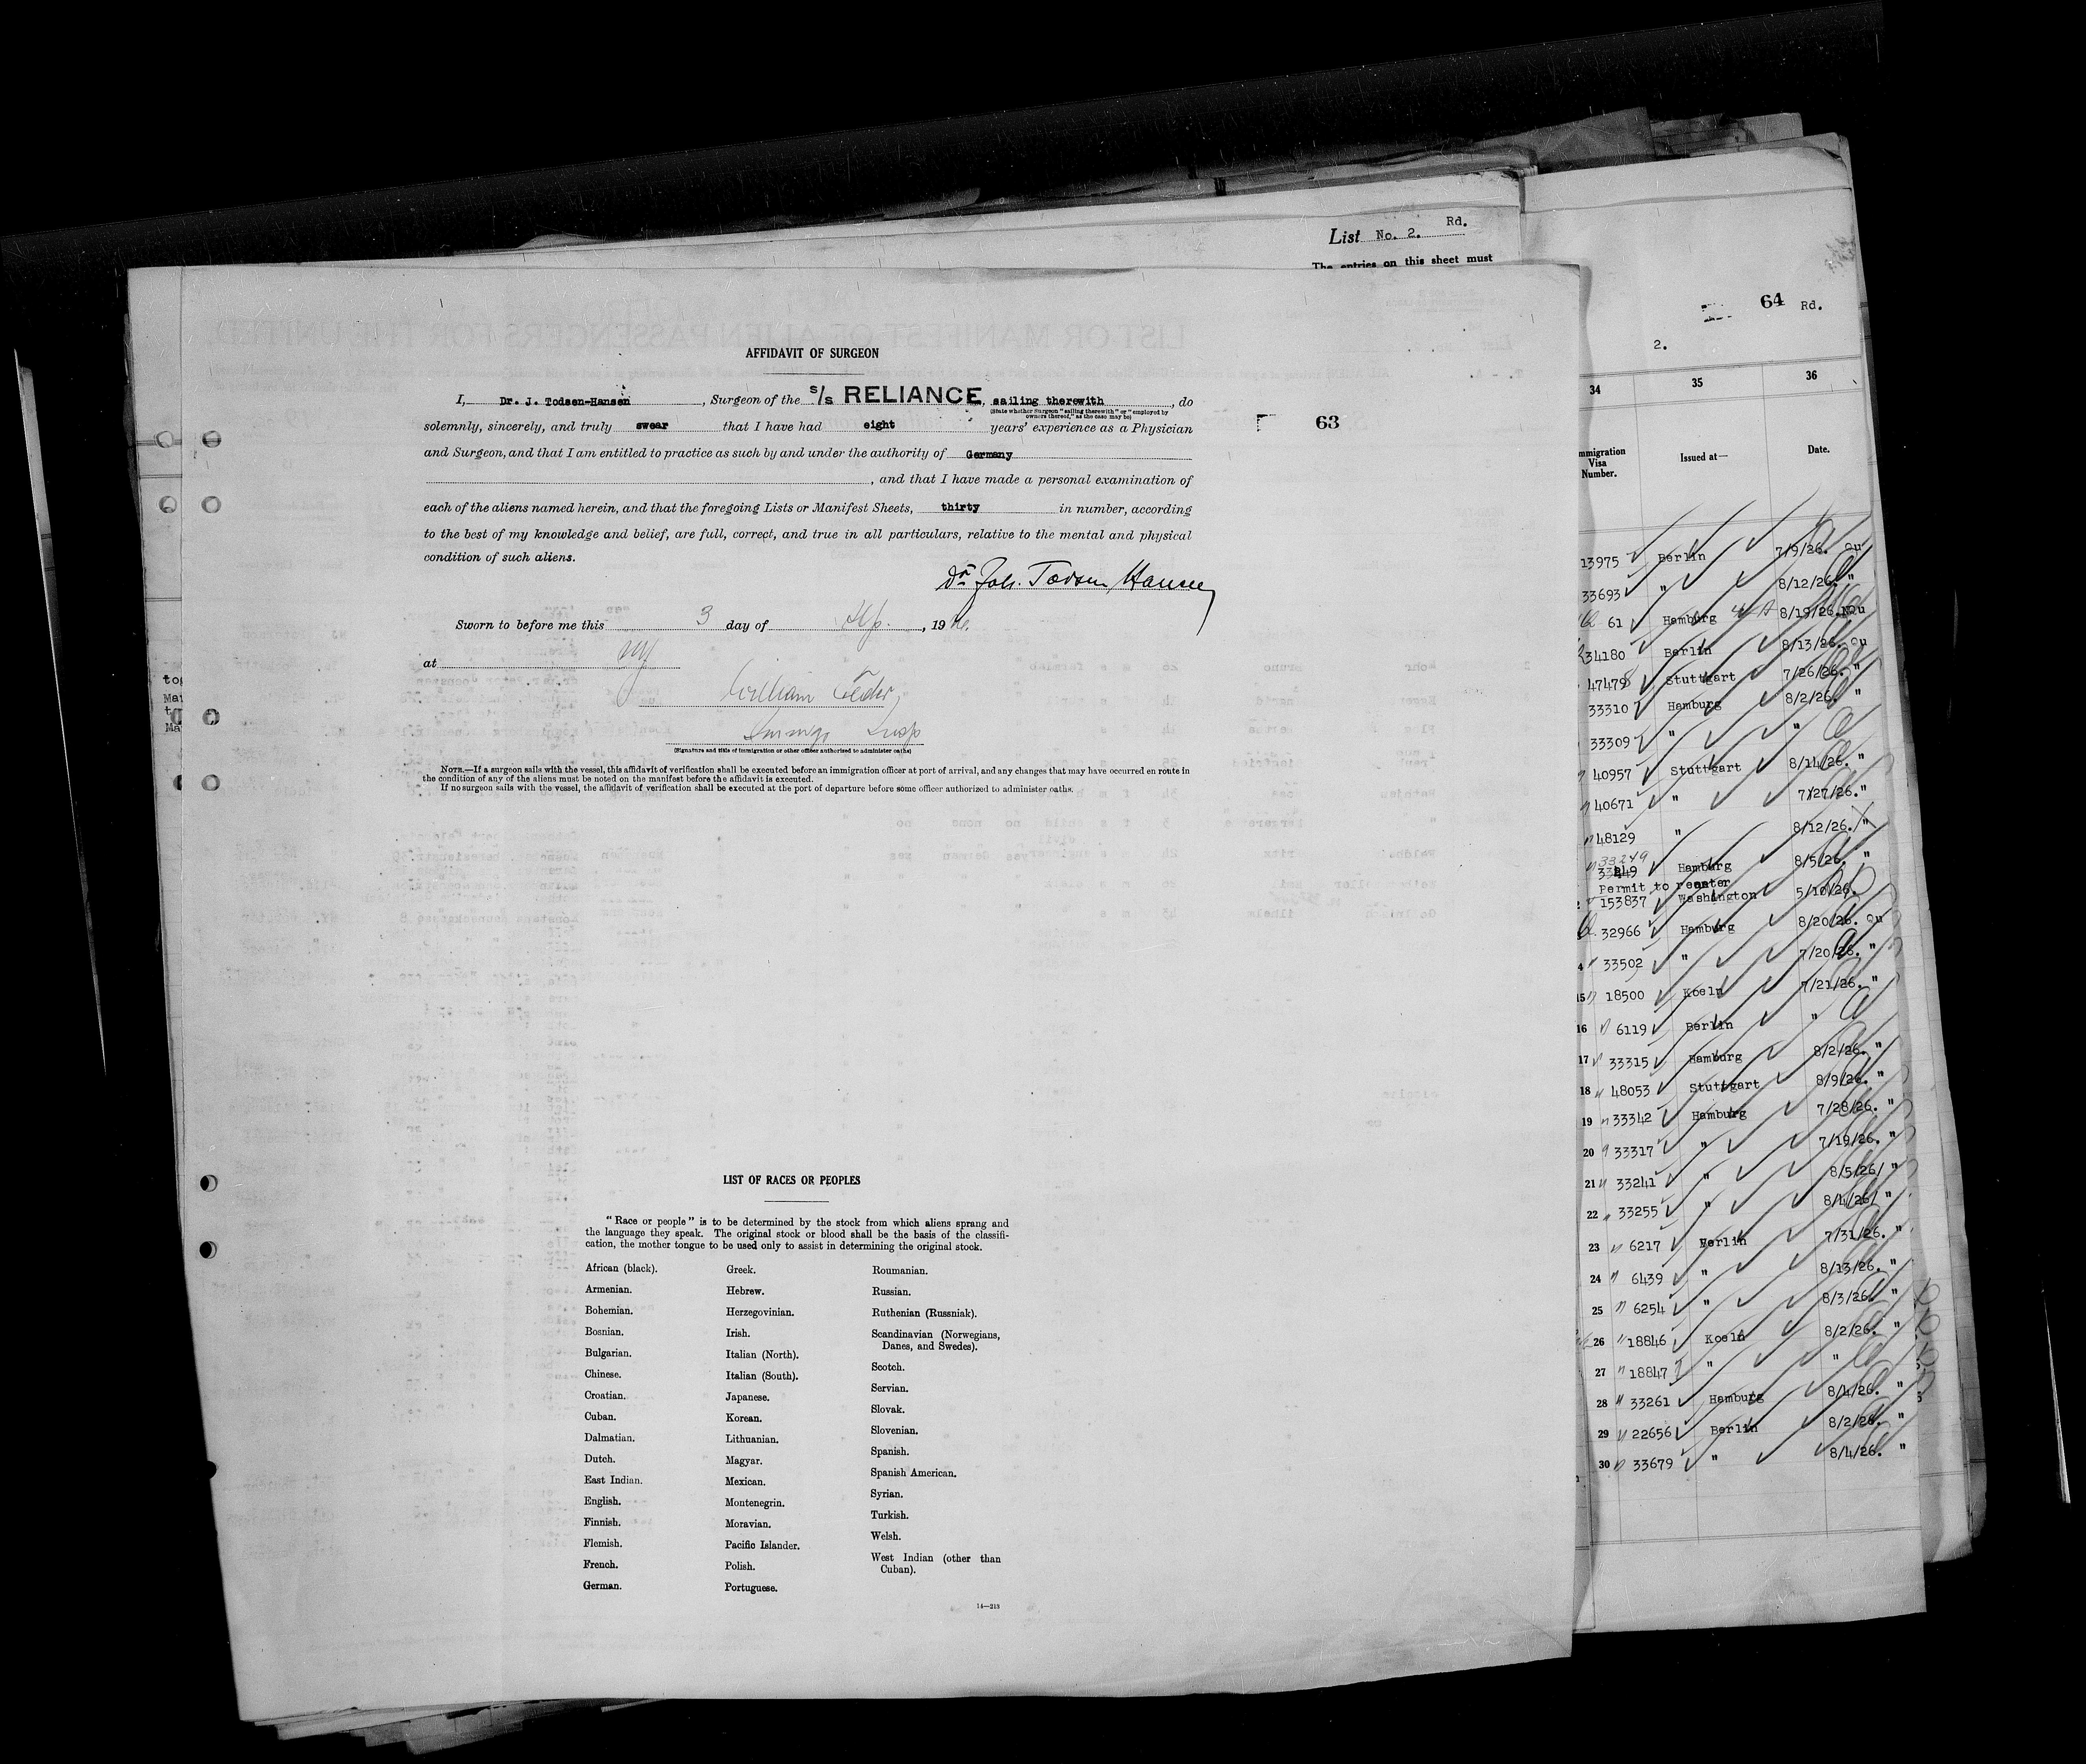 List No. 2. Rd.
The entries on this sheet must
AFFIDAVIT OF SURGEON
I, Dr. J. Todsen-Hansen, Surgeon of the s/s RELIANCE, sailing therewith, do
(State whether Surgeon "sailing therewith" or "employed by
owners thereof," as the case may be)
solemnly, sincerely, and truly swear that I have had eight years' experience as a Physician
and Surgeon, and that I am entitled to practice as such by and under the authority of Germany
, and that I have made a personal examination of
each of the aliens named herein, and that the foregoing Lists or Manifest Sheets, thirty in number, according
to the best of my knowledge and belief, are full, correct, and true in all particulars, relative to the mental and physical
condition of such aliens.
Sworn to before me this 3 day of , 19
at
William
(Signature and title of immigration or other officer authorized to administer oaths)
NOTE.—If a surgeon sails with the vessel, this affidavit of verification shall be executed before an immigration officer at port of arrival, and any changes that may have occurred en route in
the condition of any of the aliens must be noted on the manifest before the affidavit is executed.
If no surgeon sails with the vessel, the affidavit of verification shall be executed at the port of departure before some officer authorized to administer oaths.
63
LIST OF RACES OR PEOPLES
"Race or people" is to be determined by the stock from which aliens sprang and
the language they speak. The original stock or blood shall be the basis of the classifi-
cation, the mother tongue to be used only to assist in determining the original stock.
African (black).
Armenian.
Bohemian.
Bosnian.
Bulgarian.
Chinese.
Croatian.
Cuban.
Dalmatian.
Dutch.
East Indian.
English.
Finnish.
Flemish.
French.
German.
Greek.
Hebrew.
Herzegovinian.
Irish.
Italian (North).
Italian (South).
Japanese.
Korean.
Lithuanian.
Magyar.
Mexican.
Montenegrin.
Moravian.
Pacific Islander.
Polish.
Portuguese.
Roumanian.
Russian.
Ruthenian (Russniak).
Scandinavian (Norwegians,
Danes, and Swedes).
Scotch.
Servian.
Slovak.
Slovenian.
Spanish.
Spanish American.
Syrian.
Turkish.
Welsh.
West Indian (other than
Cuban).
14—213
64 Rd.
2.
34 35 36
Immigration
Visa
Number.
Issued at—
Date.
13975 Berlin 7/9/26. Qu
33693 " 8/12/26. "
61 Hamburg 8/19/26. NQu
34180 Berlin 8/13/26. Qu
47478 Stuttgart 7/26/26. "
33310 Hamburg 8/2/26. "
33309 " "
40957 Stuttgart 8/14/26. "
40671 " 7/27/26. "
48129 " 8/12/26. "
33249 Hamburg 8/5/26. "
Permit to reenter
153837 Washington 5/10/26.
32966 Hamburg 8/20/26. Qu
33502 " 7/20/26. "
15 18500 Koeln 7/21/26. "
16 6119 Berlin "
17 33315 Hamburg 8/2/26. "
18 48053 Stuttgart 8/9/26. "
19 33342 Hamburg 7/28/26. "
20 33317 " 7/19/26. "
21 33241 " 8/5/26/ "
22 33255 " 8/4/26/ "
23 6217 Berlin 7/31/26. "
24 6439 " 8/13/26. "
25 6254 " 8/3/26. "
26 18846 Koeln 8/2/26. "
27 18847 " "
28 33261 Hamburg 8/4/26. "
29 22656 Berlin 8/2/26. "
30 33679 " 8/4/26. "